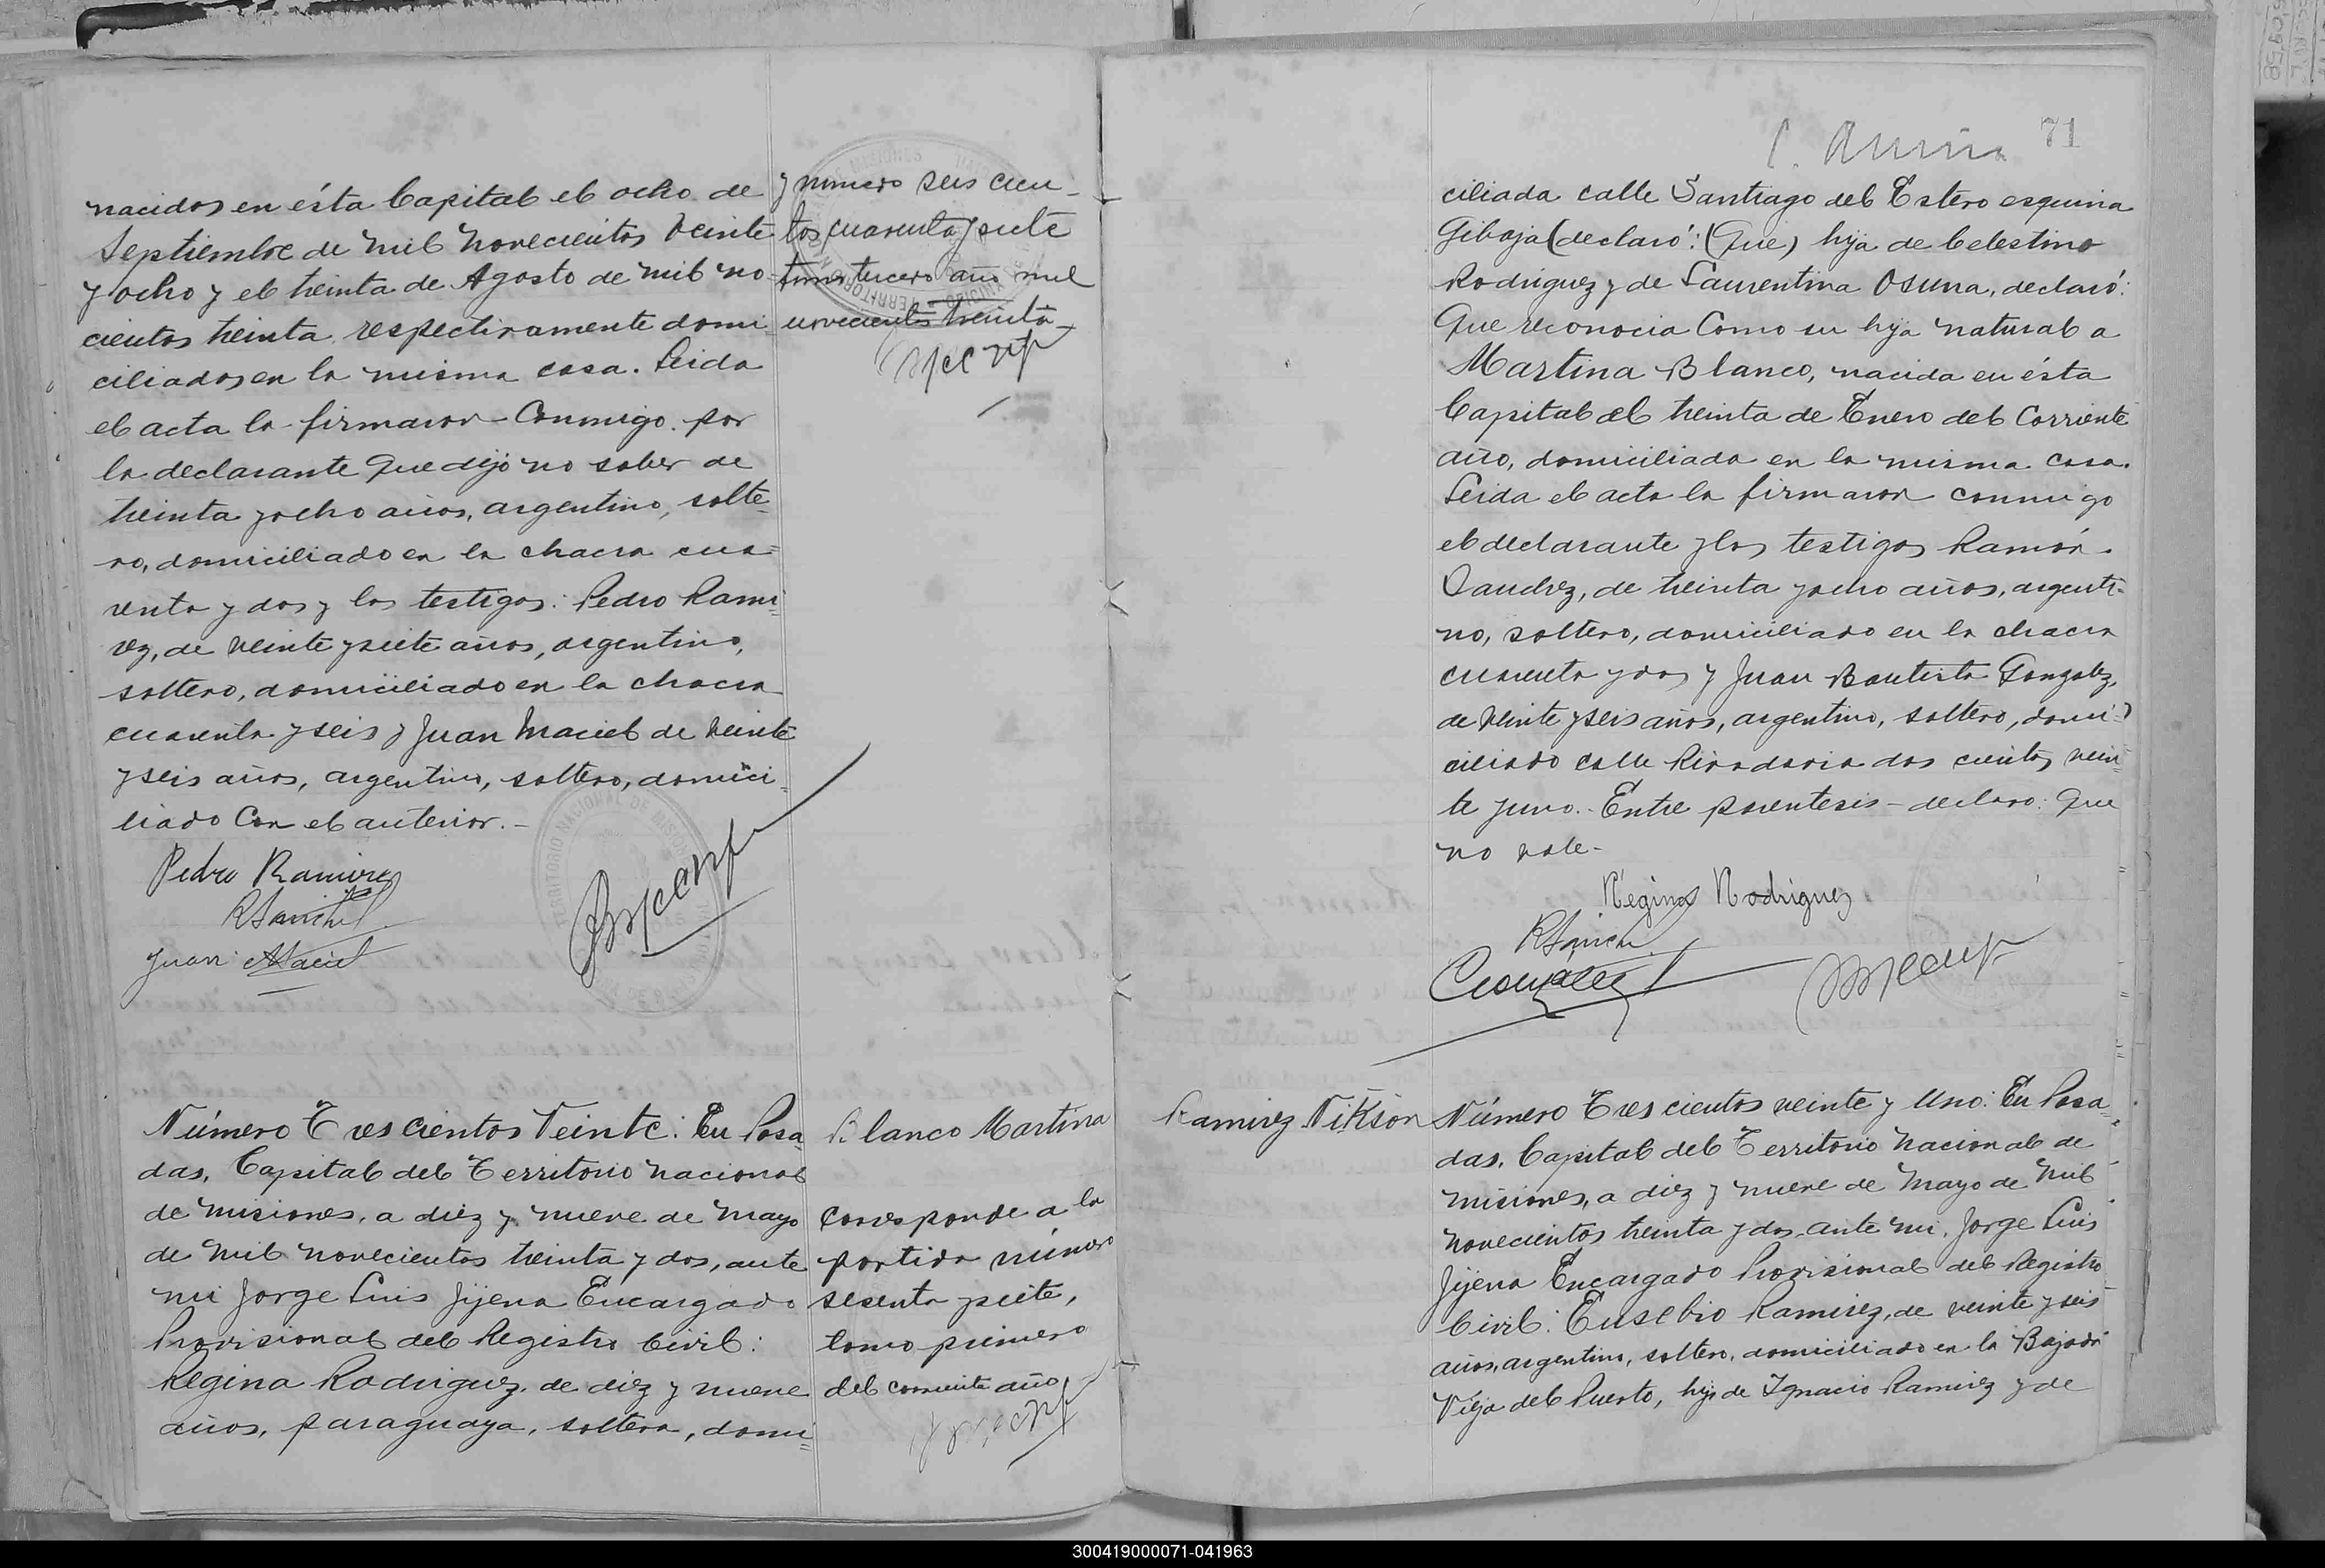 nacidos en ésta Capital el ocho de
Septiembre de mil novecientos veinte
y ocho y el treinta de Agosto de mil no-
cientos treinta, respectivamente domi-
ciliados en la misma casa. Leida
el acta la firmaron conmigo por
la declarante que dijo no saber de
treinta y ocho años, argentino, solte=
ro, domiciliado en la chacra cua=
renta y dos y los testigos: Pedro Rami=
rez, de veinte y siete años, argentino,
soltero, domiciliado en la chacra
cuarenta y seis y Juan Maciel de veinte
y seis años, argentino, soltero, domici=
liado con el anterior.-
Pedro Ramirez
RSanchez
Juan Maciel
y número seis cien-
tos cuarenta y siete
tomo tercero año mil
novecientos treinta
Número Trescientos Veinte: En Posa=
das, Capital del Territorio Nacional
de Misiones, a diez y nueve de Mayo
de mil novecientos treinta y dos, ante
mi Jorge Luis Jijena Encargado
Provisional del Registro Civil:
Regina Rodriguez, de diez y nueve
años, paraguaya, soltera, domi=
Blanco Martina
Corresponde a la
partida número
sesenta y siete,
tomo primero
del corriente año
71
ciliada calle Santiago del Estero esquina
Gibaja (declaró: (Que) hija de Celestino
Rodriguez y de Laurentina Osuna, declaró:
Que reconocia como su hija natural a
Martina Blanco, nacida en ésta
Capital el treinta de Enero del corriente
año, domiciliada en la misma casa.
Leida el acta la firmaron conmigo
el declarante y los testigos Ramón
Sanchez, de treinta y ocho años, argenti=
no, soltero, domiciliado en la chacra
cuarenta y dos y Juan Bautista Gonzalez,
de veinte y seis años, argentino, soltero, domi=
ciliado calle Rivadavia dos cientos vein=
te y uno.- Entre parentesis - declaro: Que
no vale-
Regina Rodriguez
RSanchez
Gonzalez
Ramirez Nikson
Número Trescientos veinte y Uno: En Posa=
das, Capital del Territorio Nacional de
Misiones, a diez y nueve de Mayo de mil
novecientos treinta y dos, ante mi, Jorge Luis
Jijena Encargado Provisional del Registro
Civil: Eusebio Ramirez, de veinte y seis
años, argentino, soltero, domiciliado en la Bajada
Vieja del Puerto, hijo de Ignacio Ramirez y de
300419000071-041963